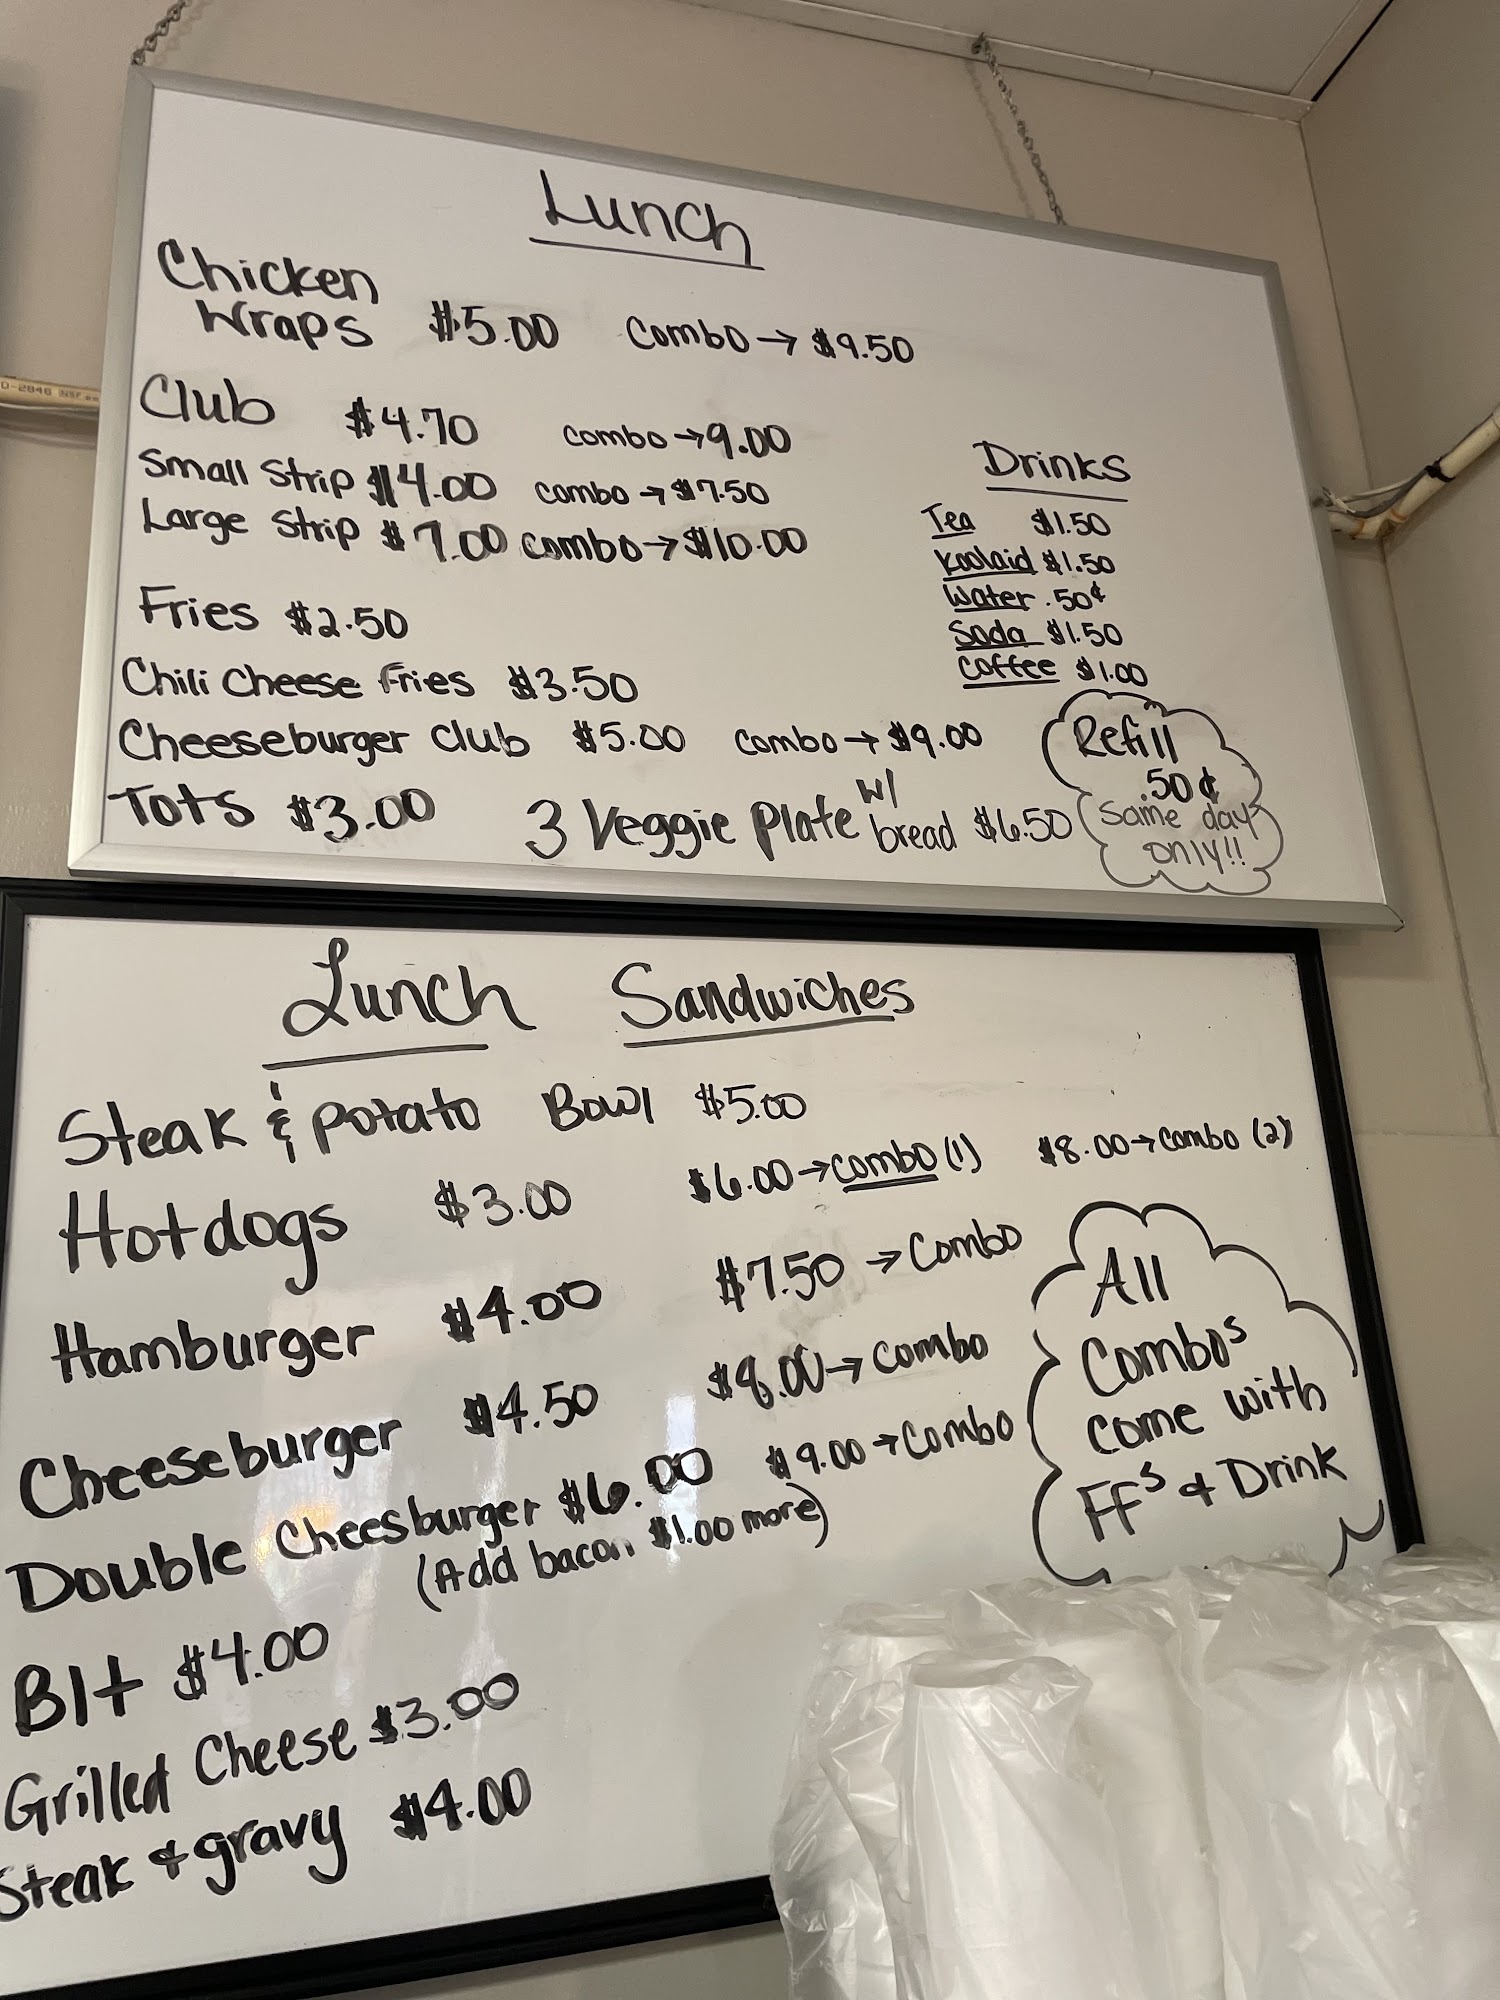 Lunch
Chicken
Wraps $5.00 Combo → $9.50
Club $4.70 combo → 9.00
Small Strip $4.00 combo → $7.50
Large Strip $7.00 combo → $10.00
Fries $2.50
Chili Cheese Fries $3.50
Cheeseburger Club $5.00 combo → $9.00
Tots $3.00 3 Veggie Plate w/ bread $6.50
Drinks
Tea $1.50
Koolaid $1.50
Water .50¢
Soda $1.50
Coffee $1.00
Refill
.50¢
Same day
only!!
Lunch Sandwiches
Steak & Potato Bowl $5.00
Hotdogs $3.00 $6.00 → combo (1) $8.00 → combo (2)
Hamburger $4.00 $7.50 → Combo
Cheeseburger $4.50 $8.00 → Combo
Double Cheesburger $6.00 $9.00 → Combo
(Add bacon $1.00 more)
Blt $4.00
Grilled Cheese $3.00
Steak & gravy $4.00
All
Combos
come with
FFs & Drink